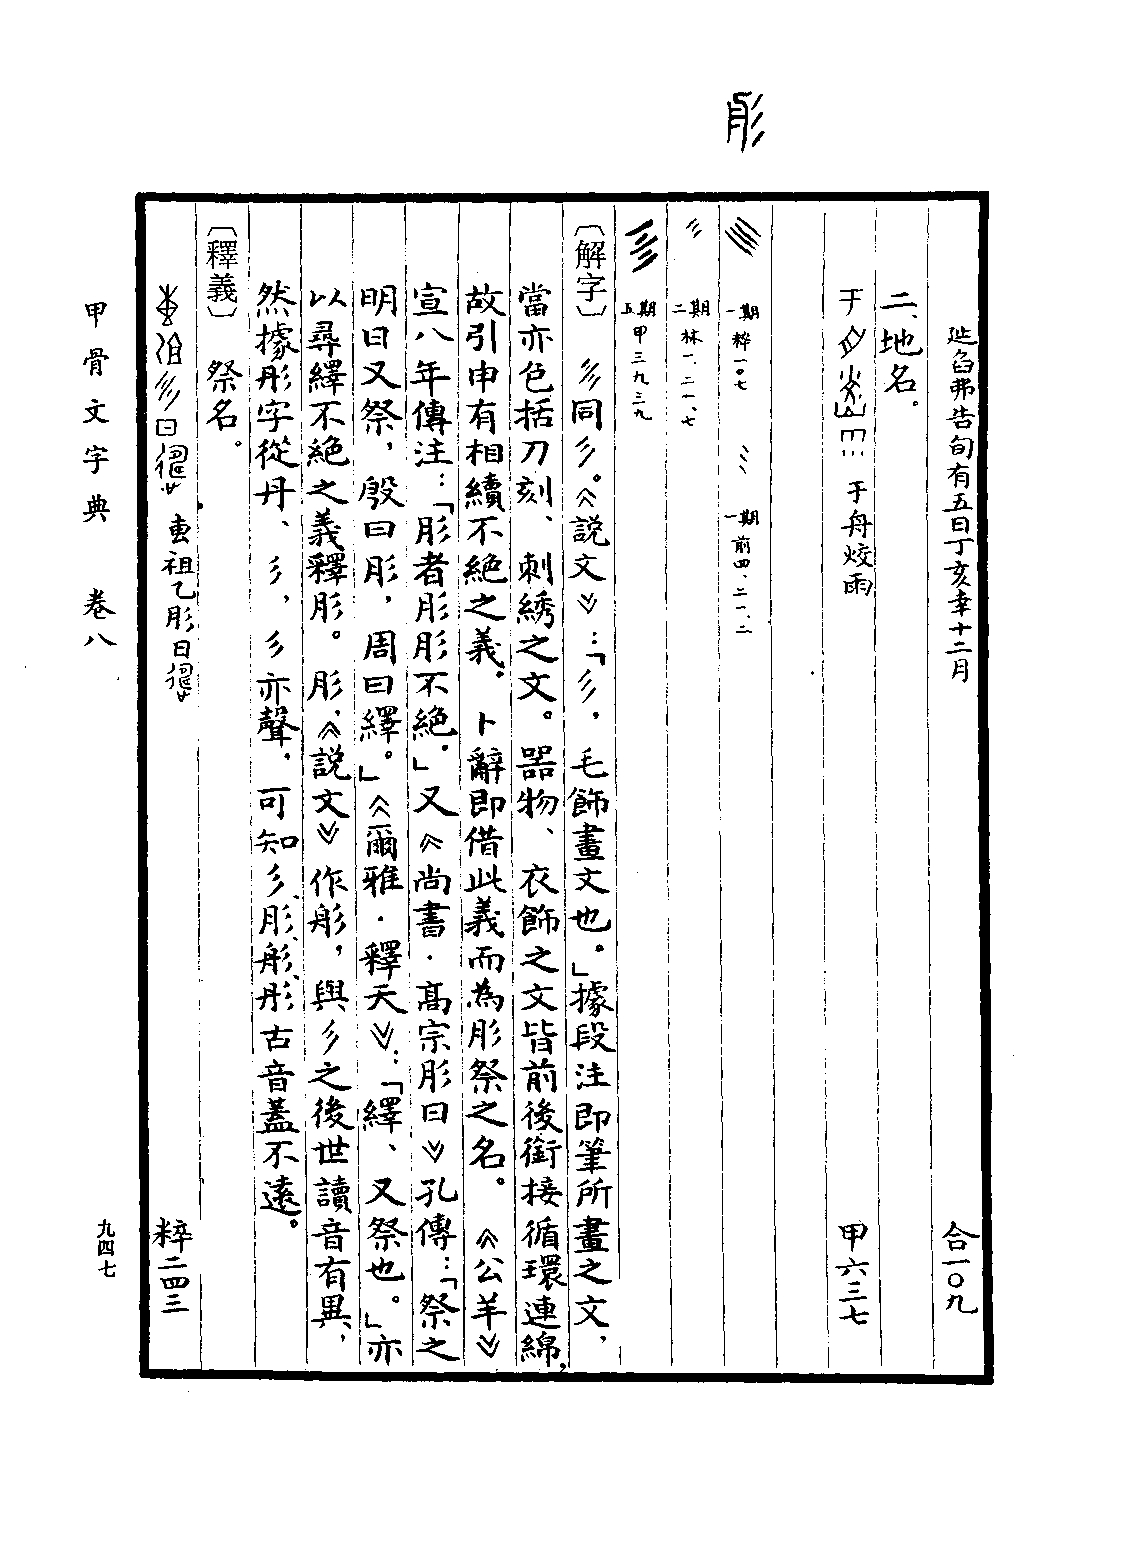 肜
𢓊舀弗告旬有五日丁亥𡘹十二月 合一〇九
二、地名。
于舟烄雨 甲六三七
一期 粹一〇七 一期 前四、二一、二
二期 林一、二一、七
五期 甲三九三九
〔解字〕 彡同彡。《說文》：「彡，毛飾畫文也。」據段注即筆所畫之文，
當亦包括刀刻、刺綉之文。器物、衣飾之文皆前後銜接循環連綿，
故引申有相續不絕之義。卜辭即借此義而為肜祭之名。《公羊》
宣八年傳注：「肜者肜肜不絕。」又《尚書·高宗肜日》孔傳：「祭之
明日又祭，殷曰肜，周曰繹。」《爾雅·釋天》：「繹、又祭也。」亦
以尋繹不絕之義釋肜。肜、《說文》作彤，與彡之後世讀音有異，
然據彤字從丹、彡，彡亦聲，可知彡、肜、彤、彤古音蓋不遠。
〔釋義〕 祭名。
叀祖乙肜日 粹二四三
甲骨文字典 卷八
九四七